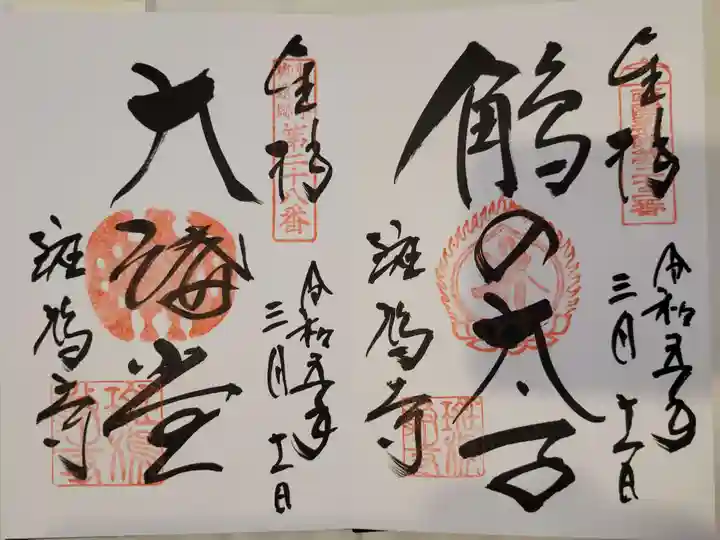 奉拝
鵤の太子
斑鳩寺
令和五年
三月十一日
斑鳩寺
奉拝
第二十八番
大講堂
斑鳩寺
令和五年
三月十一日
斑鳩寺